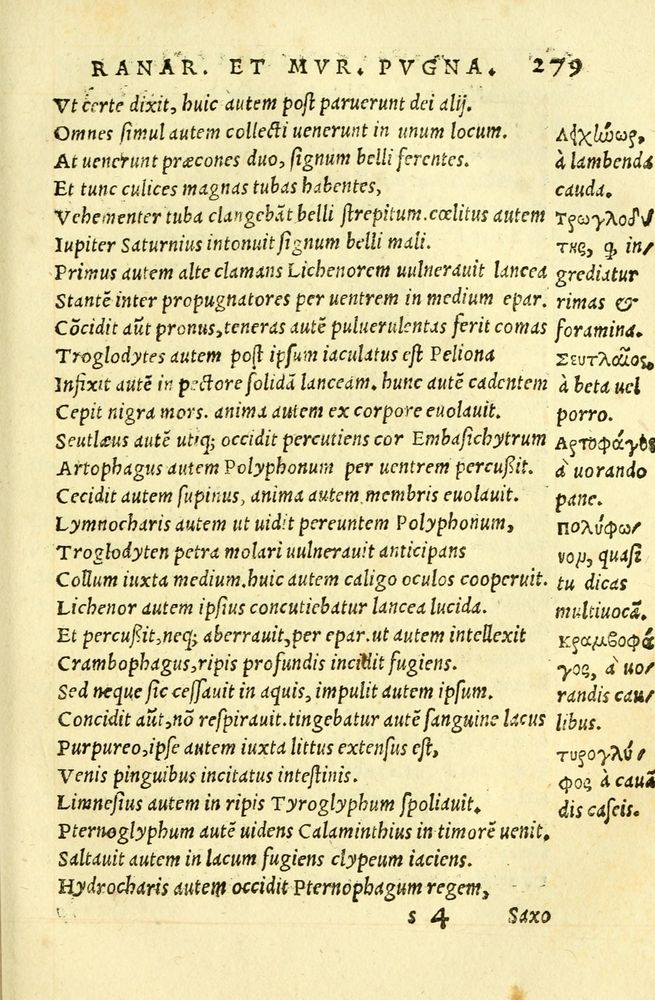 RANAR. ET MVR. PVGNA. 279
Vt certe dixit, huic autem post paruerunt dei alij.
Omnes simul autem collecti uenerunt in unum locum.
At uenerunt præcones duo, signum belli ferentes.
Et tunc culices magnas tubas habentes,
Vehementer tuba clangebãt belli strepitum. cœlitus autem
Iupiter Saturnius intonuit signum belli mali.
Primus autem alte clamans Lichenorem uulnerauit lancea
Stantẽ inter propugnatores per uentrem in medium epar.
Cõcidit aũt pronus, teneras autẽ puluerulentas ferit comas
Troglodytes autem post ipsum iaculatus est Peliona
Infixit autẽ in pectore solidã lanceam. hunc autẽ cadentem
Cepit nigra mors. anima autem ex corpore euolauit.
Seutlæus autẽ utiq; occidit percutiens cor Embasichytrum
Artophagus autem Polyphonum per uentrem percußit.
Cecidit autem supinus, anima autem membris euolauit.
Lymnocharis autem ut uidit pereuntem Polyphonum,
Troglodyten petra molari uulnerauit anticipans
Collum iuxta medium. huic autem caligo oculos cooperuit.
Lichenor autem ipsius concutiebatur lancea lucida.
Et percußit, neq; aberrauit, per epar. ut autem intellexit
Crambophagus, ripis profundis incidit fugiens.
Sed neque sic cessauit in aquis, impulit autem ipsum.
Concidit aũt, nõ respirauit. tingebatur autẽ sanguine lacus
Purpureo, ipse autem iuxta littus extensus est,
Venis pinguibus incitatus intestinis.
Limnesius autem in ripis Tyroglyphum spoliauit.
Pternoglyphum autẽ uidens Calaminthius in timorẽ uenit.
Saltauit autem in lacum fugiens clypeum iaciens.
Hydrocharis autem occidit Pternophagum regem,
s 4 Saxo
à lambenda
cauda.
Τρωγλοδύ
της, q, in/
grediatur
rimas &
foramina.
Σευτλαῖος,
à beta uel
porro.
Αρτοφάγος
à uorando
pane.
πολύφω/
νον, quasi
tu dicas
multiuocã.
κραμβοφά
γος, à uo/
randis cau/
libus.
τυρογλύ/
φος à cauã
dis caseis.